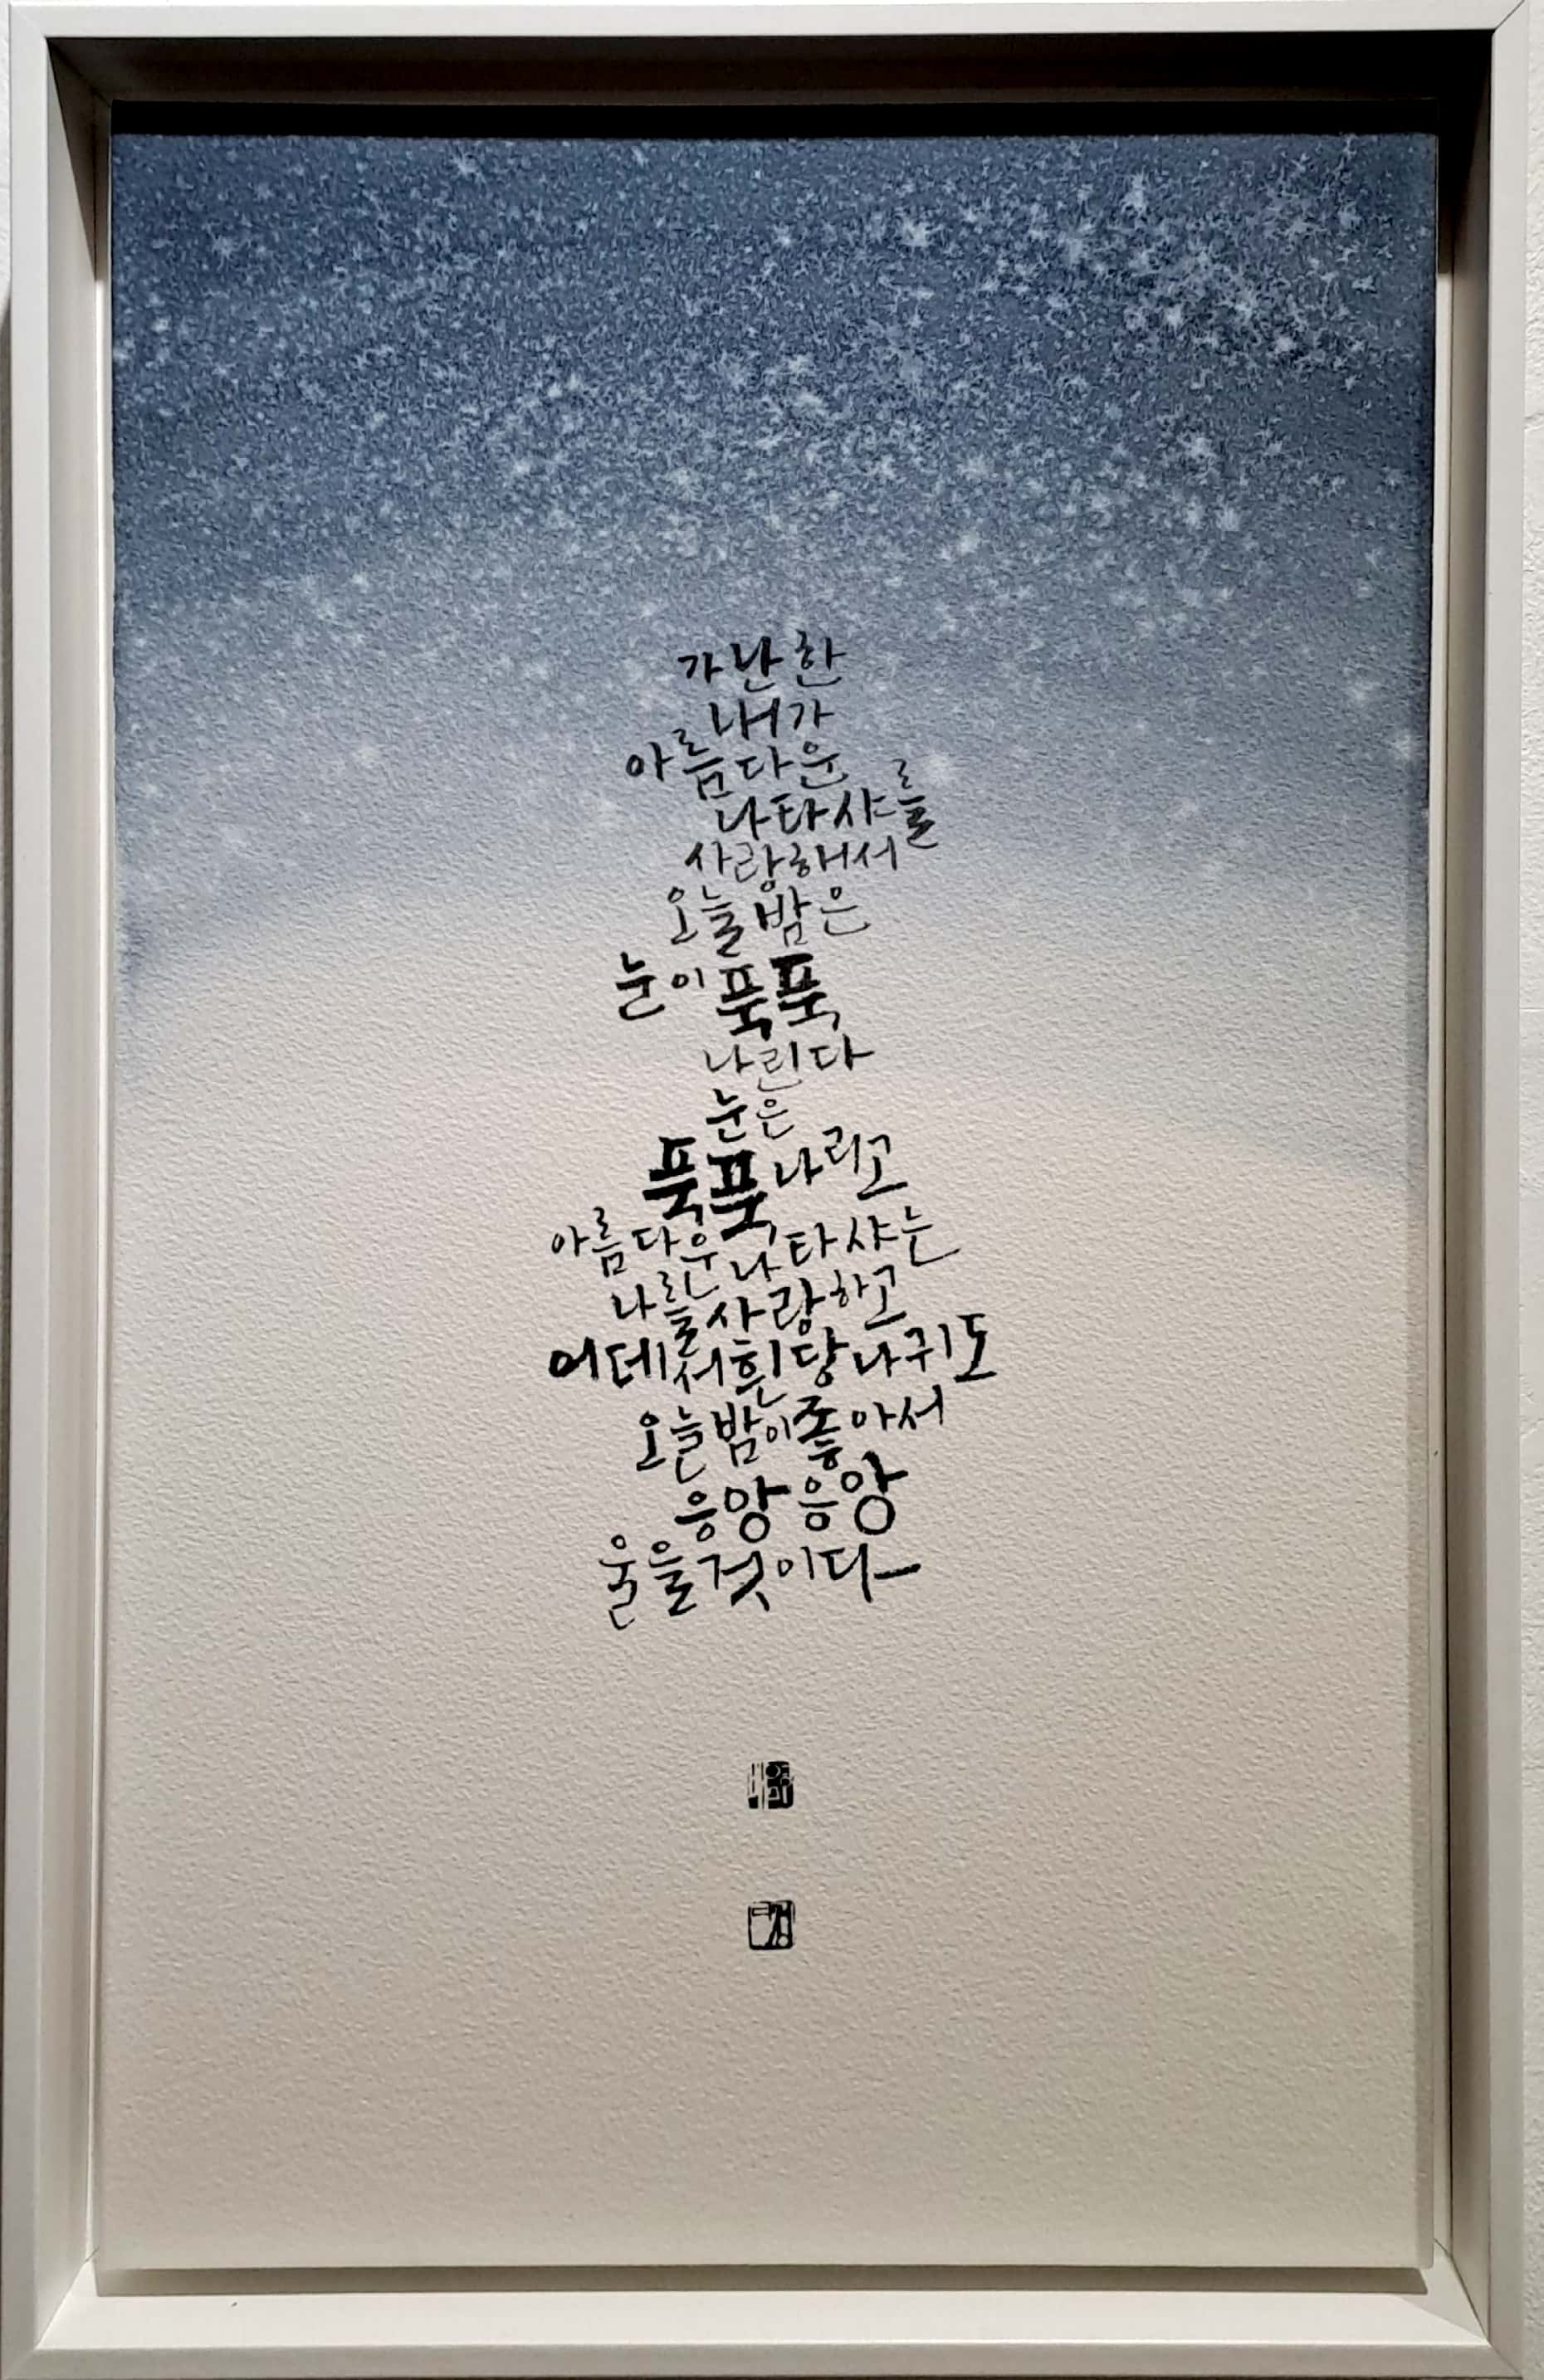 가난한
내가
아름다운
나타샤를
사랑해서
오늘밤은
눈이 푹푹
나린다
눈은
푹푹 나리고
아름다운 나타샤는
나를 사랑하고
어데서 흰 당나귀도
오늘밤이 좋아서
응앙응앙
울을 것이다